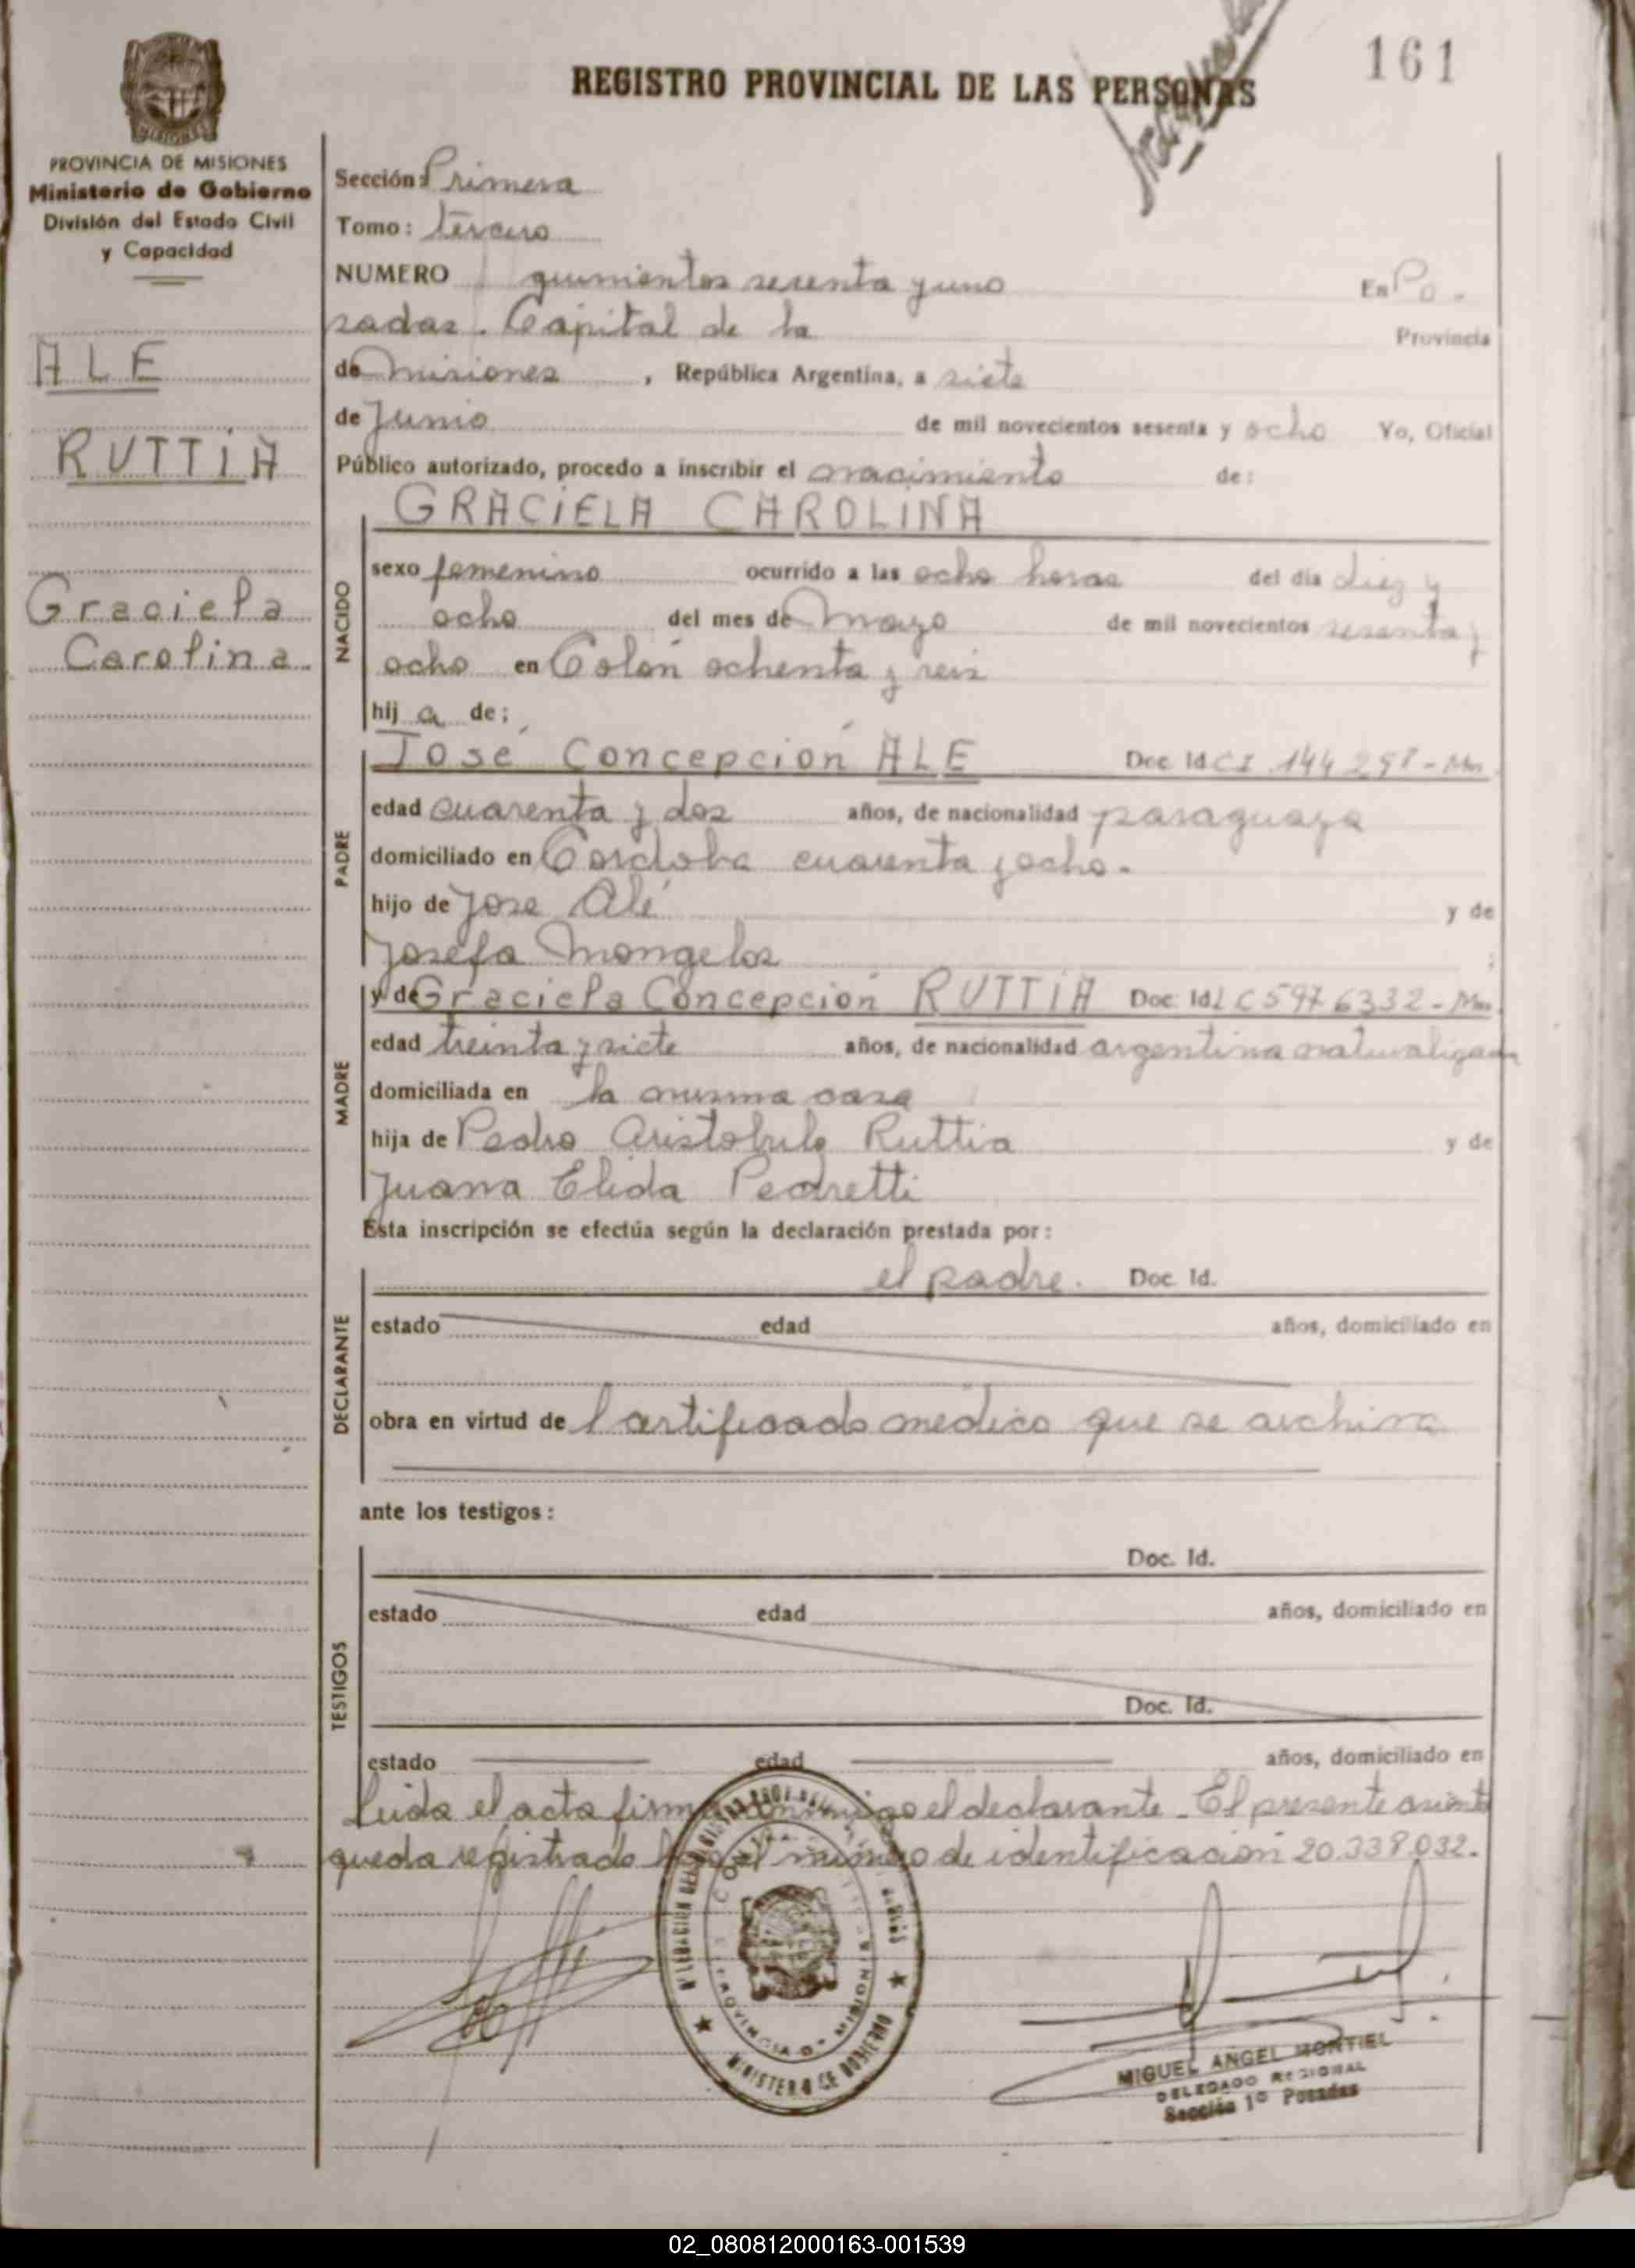 161
REGISTRO PROVINCIAL DE LAS PERSONAS
PROVINCIA DE MISIONES
Ministerio de Gobierno
División del Estado Civil
y Capacidad
ALE
RUTTIA
Graciela
Carolina
Sección: Primera
Tomo: tercero
NUMERO quinientos sesenta y uno En Po-
sadas. Capital de la Provincia
de Misiones, República Argentina, a siete
de Junio de mil novecientos sesenta y ocho Yo, Oficial
Público autorizado, procedo a inscribir el nacimiento de:
GRACIELA CAROLINA
NACIDO
sexo femenino ocurrido a las ocho horas del día diez y
ocho del mes de Mayo de mil novecientos sesenta y
ocho en Colón ochenta y seis
hij a de;
PADRE
José Concepción ALE Doc. Id CI 144 298 - Mns
edad cuarenta y dos años, de nacionalidad paraguaya
domiciliado en Cordoba cuarenta y ocho.
hijo de Jose Alé y de
Josefa Mongelos ;
MADRE
y de Graciela Concepción RUTTIA Doc. Id L C 5976332 - Mns.
edad treinta y siete años, de nacionalidad argentina naturalizada
domiciliada en la misma casa
hija de Pedro Aristobulo Ruttia y de
Juana Elida Pedretti
Esta inscripción se efectúa según la declaración prestada por:
DECLARANTE
el padre. Doc. Id.
estado edad años, domiciliado en
obra en virtud de Certificado medico que se archiva
ante los testigos:
TESTIGOS
Doc. Id.
estado edad años, domiciliado en
Doc. Id.
estado edad años, domiciliado en
Leida el acta firma conmigo el declarante. El presente asiento
queda registrado bajo el número de identificación 20.338.032.
PROVINCIA DE MISIONES
MINISTERIO DE GOBIERNO
MIGUEL ANGEL MONTIEL
DELEGADO REGIONAL
Sección 1º Posadas
02_080812000163-001539